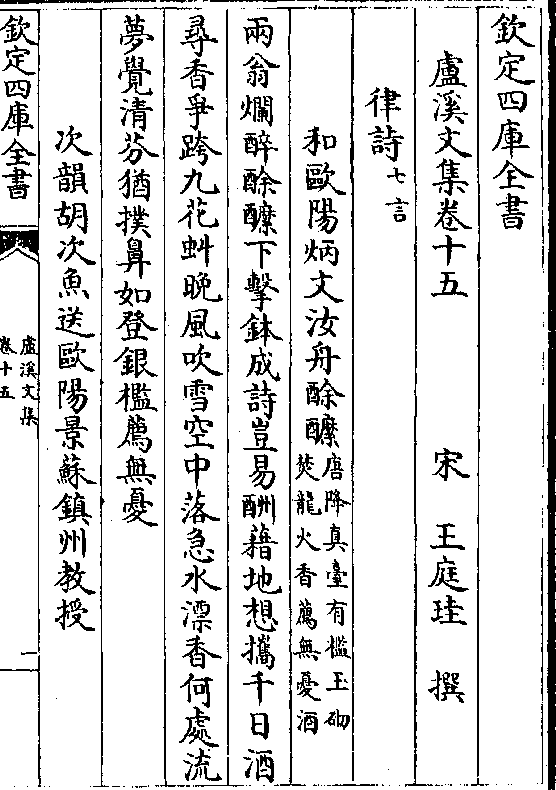 欽定四庫全書
盧溪文集卷十五　宋　王庭珪　撰
律詩七言
和歐陽炳文汝舟酴醾唐降真臺有檻玉砌
焚龍火香薦無憂酒
兩翁爛醉酴醾下擊鉢成詩豈易酬藉地想攜千日酒
尋香爭跨九花虯晚風吹雪空中落急水漂香何處流
夢覺清芬猶撲鼻如登銀檻薦無憂
次韻胡次魚送歐陽景蘇鎮州教授
欽定四庫全書
盧溪文集
卷十五
一